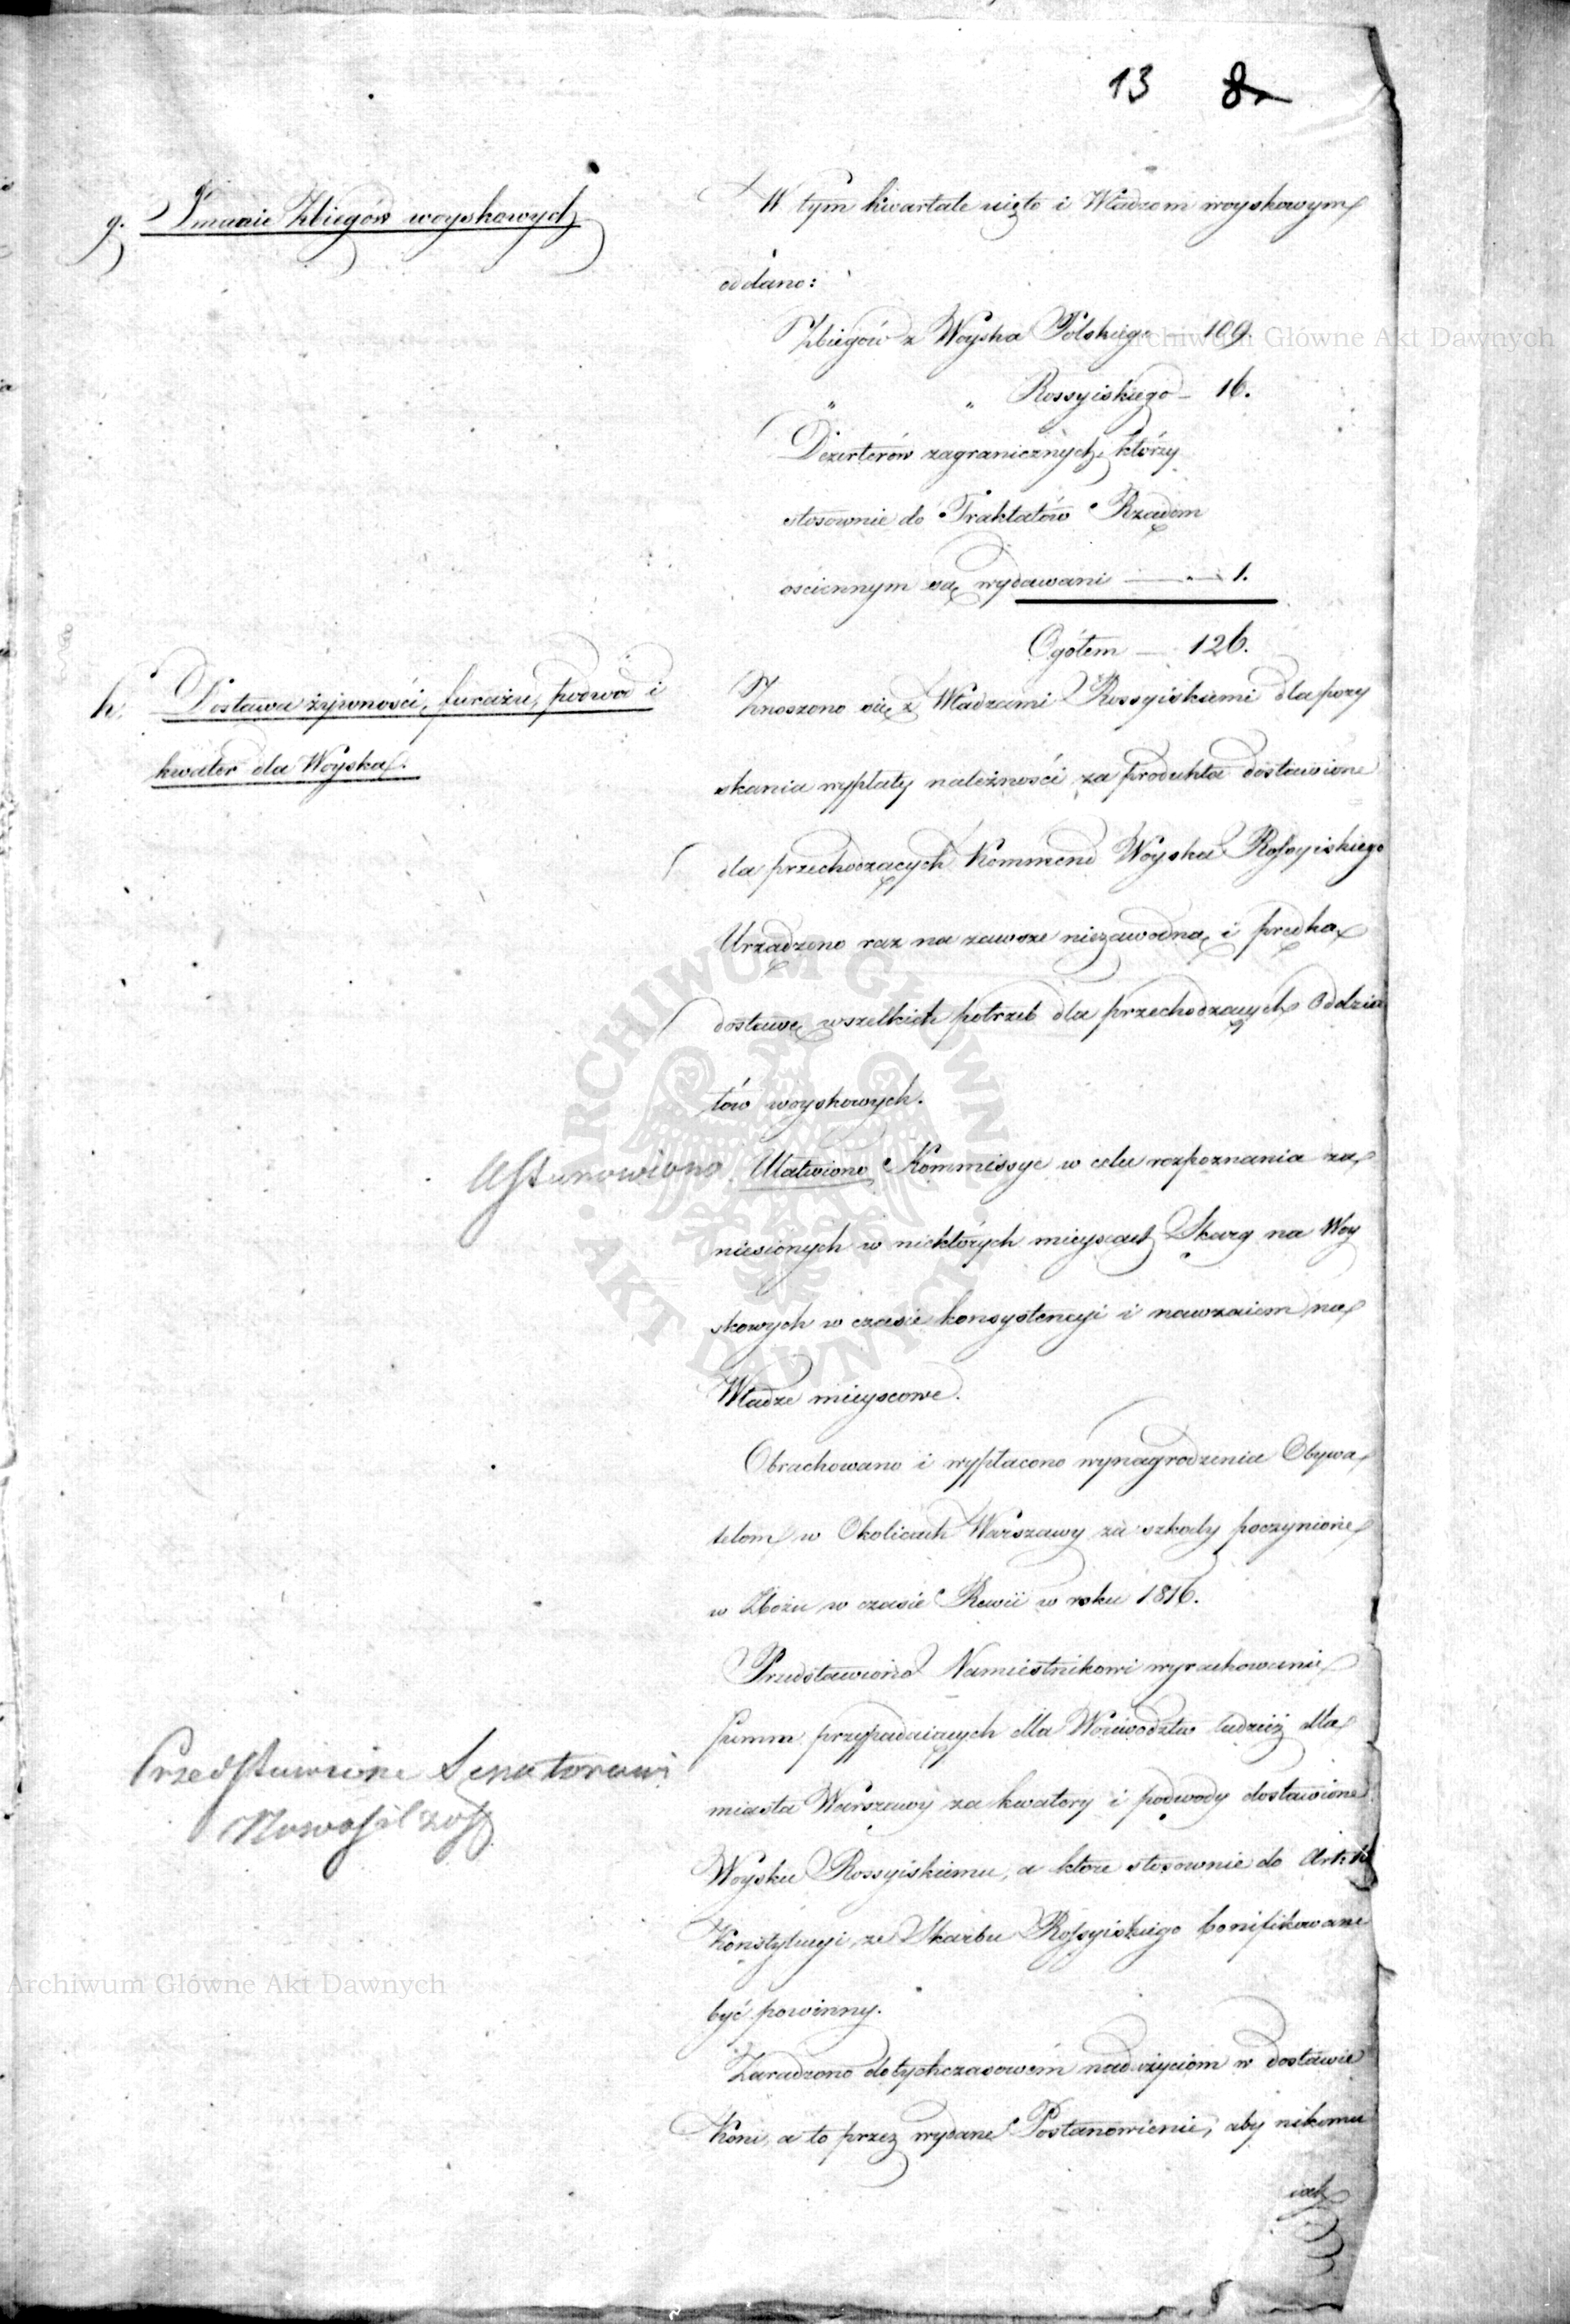 13 8
g. Imanie Zbiegów woyskowych
W tym kwartale uięto i Władzom woyskowym
oddano:
Zbiegów z Woyska Polskiego — 109.
" " Rossyiskiego — 16.
Dezerterów zagranicznych, którzy
stosownie do Traktatów Rządom
ościennym są wydawani — 1.
Ogółem — 126.
h. Dostawa żywności, furażu, podwod i
kwater dla Woyska.
Znoszono się z Władzami Rossyiskiemi dla pozy
skania wypłaty należności za produkta dostawione
dla przechodzących Kommend Woyska Rossyiskiego
Urządzono raz na zawsze niezawodną i prędką
dostawę wszelkich potrzeb dla przechodzących Oddzia
łów woyskowych.
Ustanowiono
Ułatwiono Kommissye w celu rozpoznania za
niesionych w niektórych mieyscach Skarg na Woy
skowych w czasie konsystencyi i nawzaiem na
Władze mieyscowe.
Obrachowano i wypłacono wynagrodzenia Obywa
telom w Okolicach Warszawy za szkody poczynione
w Zbożu w czasie Rewii w roku 1816.
Przedstawiono Namiestnikowi wyrachowanie
summ przypadaiących dla Woiewodztw tudzież dla
miasta Warszawy za kwatery i podwody dostawione
Woysku Rossyiskiemu, a które stosownie do Art:
Konstytucyi ze Skarbu Rossyiskiego bonifikowane
być powinny.
Przedstawione Senatorowi
Nowosilzoff
Zaradzono dotychczasowém nadużyciom w dostawie
Koni, a to przez wydane Postanowienie, aby nikomu
iak
Archiwum Główne Akt Dawnych
Archiwum Główne Akt Dawnych
ARCHIWUM GŁÓWNE
AKT DAWNYCH